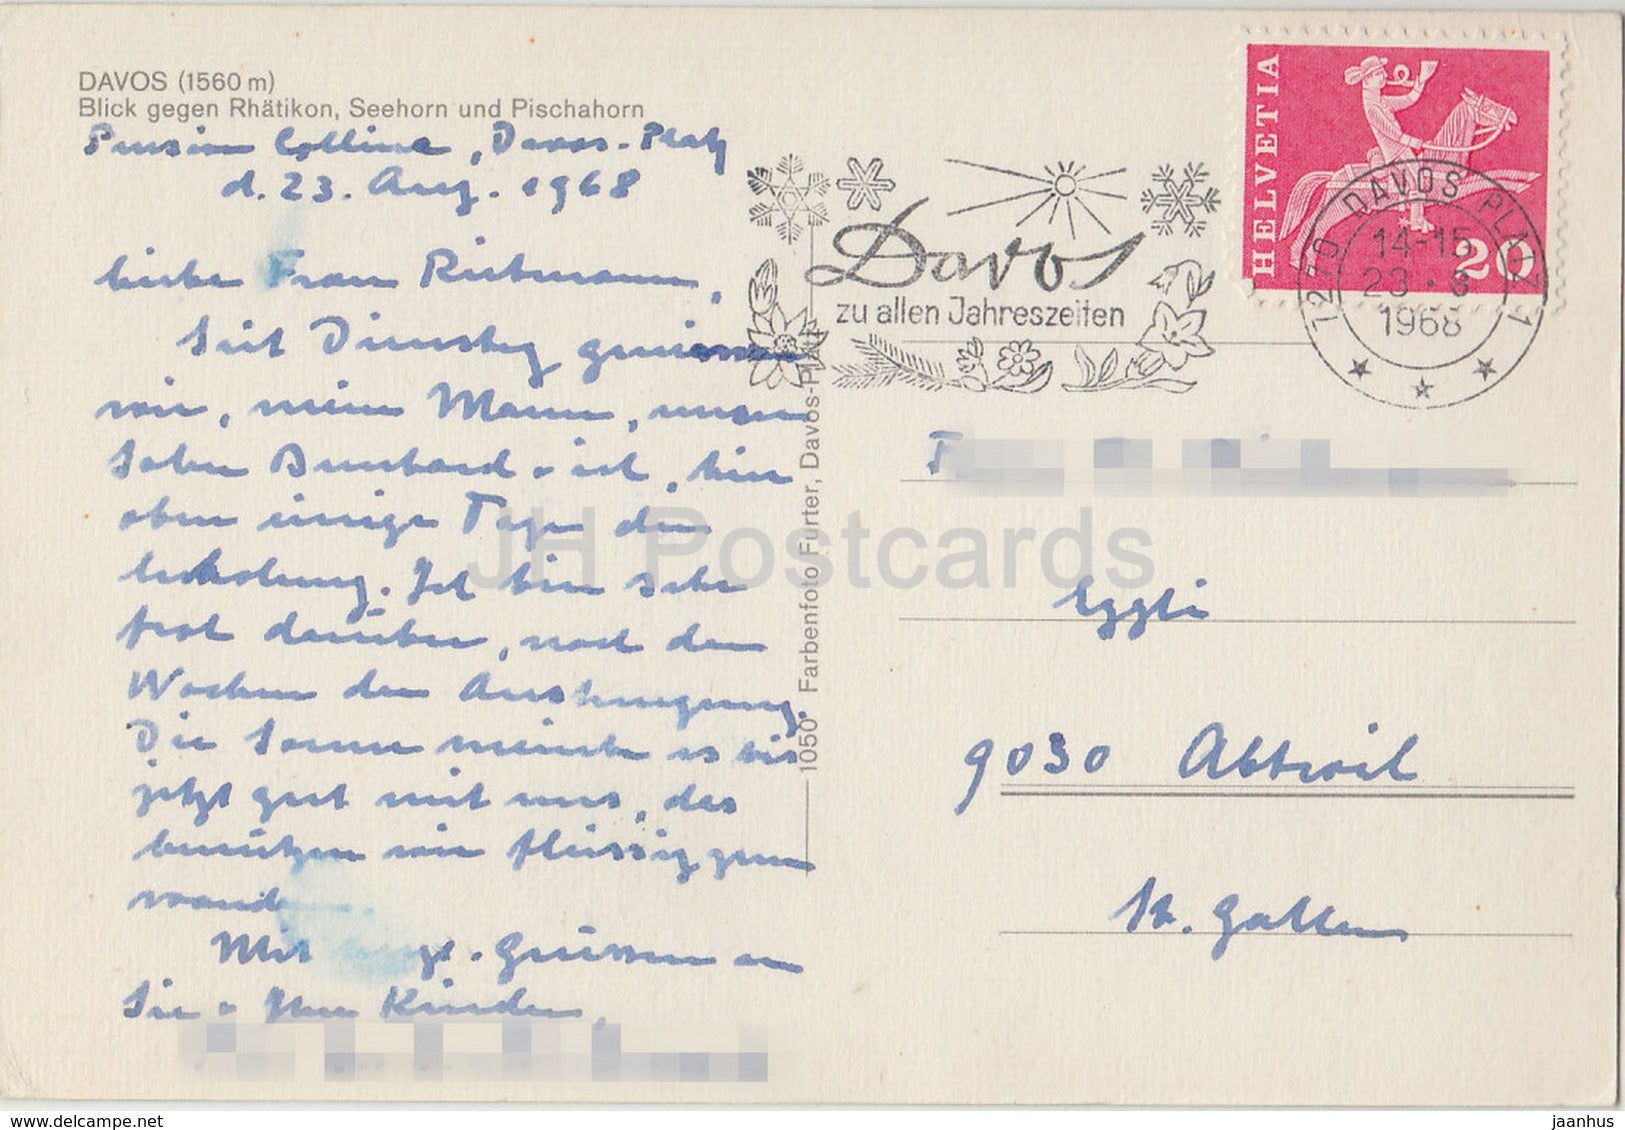 DAVOS (1560 m)
Blick gegen Rhätikon, Seehorn und Pischahorn
Pension Collina, Davos-Platz
d. 23. Aug. 1968
Liebe Frau Rietmann,
Seit Dienstag geniessen
wir, mein Mann, unser
Sohn Burkard + ich, hier
oben einige Tage der
Erholung. Ich bin sehr
froh darüber, nach den
Wochen der Anstrengung.
Die Sonne meinte es bis
jetzt gut mit uns, das
benützen wir fleissig zum
wandern
Mit Grüssen an
Sie + Ihre Kinder,
1050 Farbenfoto Furter, Davos-Platz
Davos
zu allen Jahreszeiten
HELVETIA
20
7270 DAVOS PLATZ 1
14-15
23.8
1968
Eggli
9030 Abtwil
St. Gallen
JH Postcards
www.delcampe.net
jaanhus